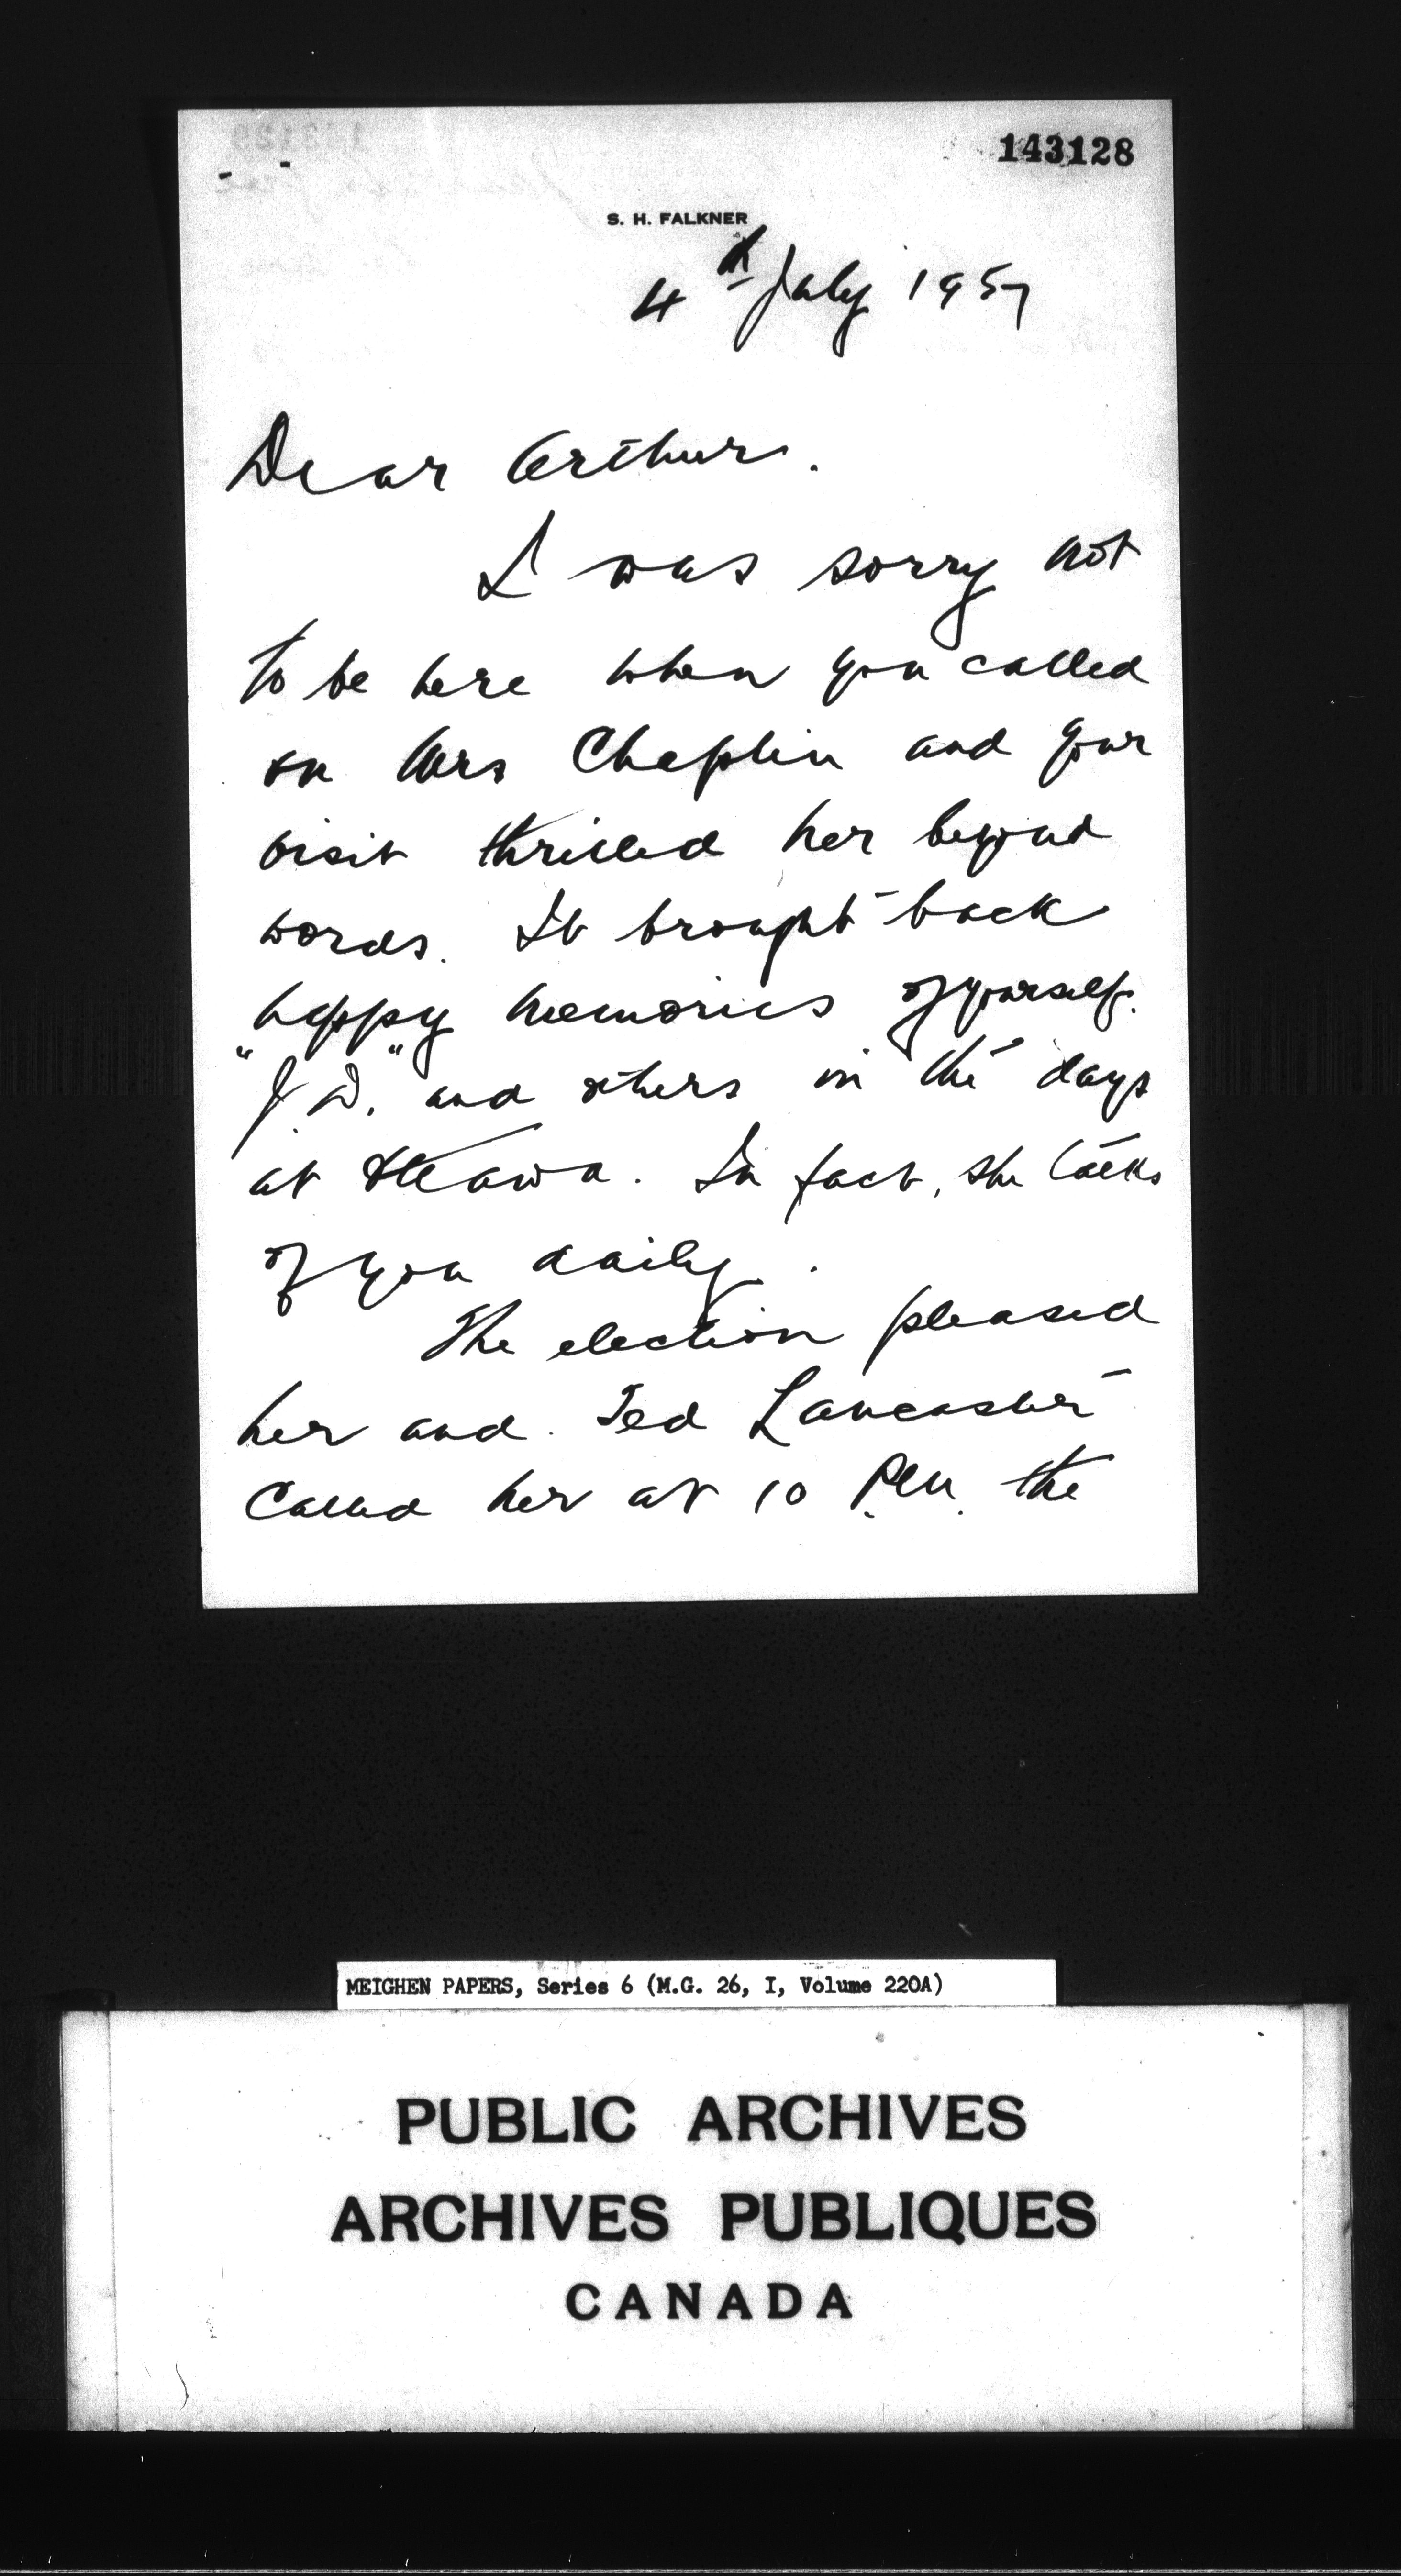 143128
S. H. FALKNER
4th July 1957
Dear Arthur.
I was sorry not
to be here when you called
on Mrs Chaplin and your
visit thrilled her beyond
words. It brought back
happy memories of yourself.
"J.D." and others in the days
at Ottawa. In fact, she talks
of you daily.
The election pleased
her and. Ted Lancaster
called her at 10 P.M. the
MEIGHEN PAPERS, Series 6 (M.G. 26, I, Volume 220A)
PUBLIC ARCHIVES
ARCHIVES PUBLIQUES
CANADA